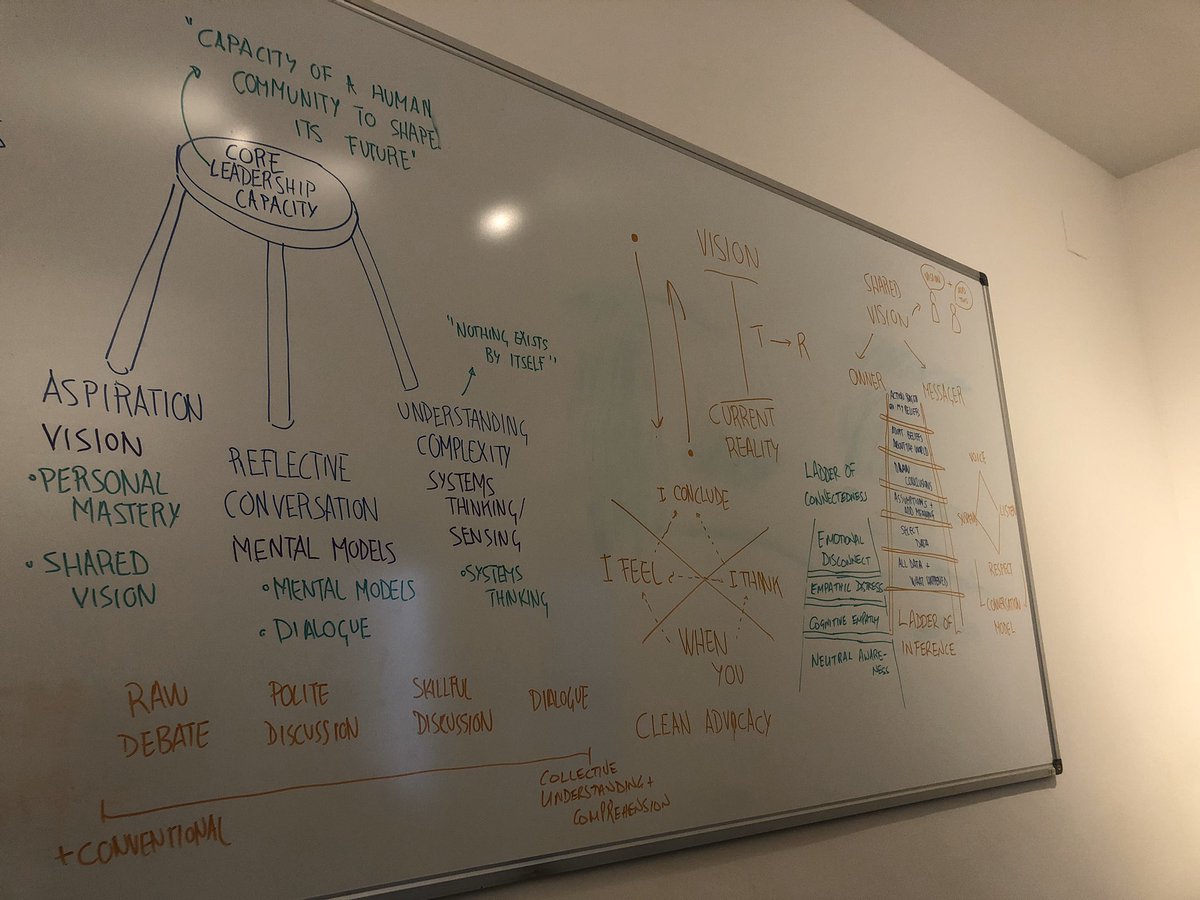 "CAPACITY OF A HUMAN
COMMUNITY TO SHAPE
ITS FUTURE"
CORE
LEADERSHIP
CAPACITY
ASPIRATION
VISION
• PERSONAL
MASTERY
• SHARED
VISION
REFLECTIVE
CONVERSATION
MENTAL MODELS
• MENTAL MODELS
• DIALOGUE
"NOTHING EXISTS
BY ITSELF"
UNDERSTANDING
COMPLEXITY
SYSTEMS
THINKING/
SENSING
• SYSTEMS
THINKING
RAW
DEBATE
POLITE
DISCUSSION
SKILLFUL
DISCUSSION
DIALOGUE
+ CONVENTIONAL
COLLECTIVE
UNDERSTANDING +
COMPREHENSION
VISION
T → R
CURRENT
REALITY
I CONCLUDE
I FEEL
I THINK
WHEN
YOU
CLEAN ADVOCACY
SHARED
VISION
VISION
+
OWNER
MESSAGER
LADDER OF
CONNECTEDNESS
EMOTIONAL
DISCONNECT
EMPATHIC DISTRESS
COGNITIVE EMPATHY
NEUTRAL AWARE-
NESS
ON MY BELIEFS
ADOPT BELIEFS
ABOUT THE WORLD
DRAW
CONCLUSIONS
ASSUMPTIONS +
ADD MEANING
SELECT
DATA
ALL DATA +
WHAT HAPPENED
LADDER OF
INFERENCE
VOICE
LISTEN
RESPECT
CONVERSATION
MODEL